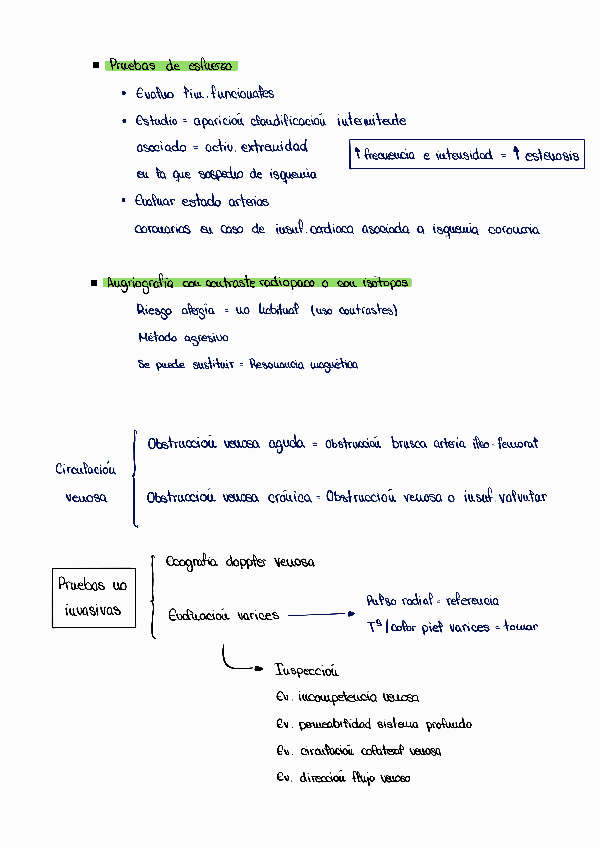 ▪ Pruebas de esfuerzo
• Evaluo lim. funcionales
• Estudio = aparición claudificación intermitente
asociado = activ. extremidad
↑ frecuencia e intensidad = ↑ estenosis
en la que sospecho de isquemia
• Evaluar estado arterias
coronarias en caso de insuf. cardiaca asociada a isquemia coronaria
▪ Angriografia con contraste radiopaco o con isótopos
Riesgo alergia = no habitual (uso contrastes)
Método agresivo
Se puede sustituir = Resonancia magnética
Obstrucción venosa aguda = obstrucción brusca arteria ileo-femoral
Circulación
venosa
Obstrucción venosa crónica = Obstrucción venosa o insuf valvular
Ecografia doppler venosa
Pruebas no
invasivas
Evaluación varices
Pulso radial = referencia
Tª/color piel varices = tomar
Inspección
Ev. incompetencia venosa
Ev. permeabilidad sistema profundo
Ev. circulación colateral venosa
Ev. dirección flujo venoso